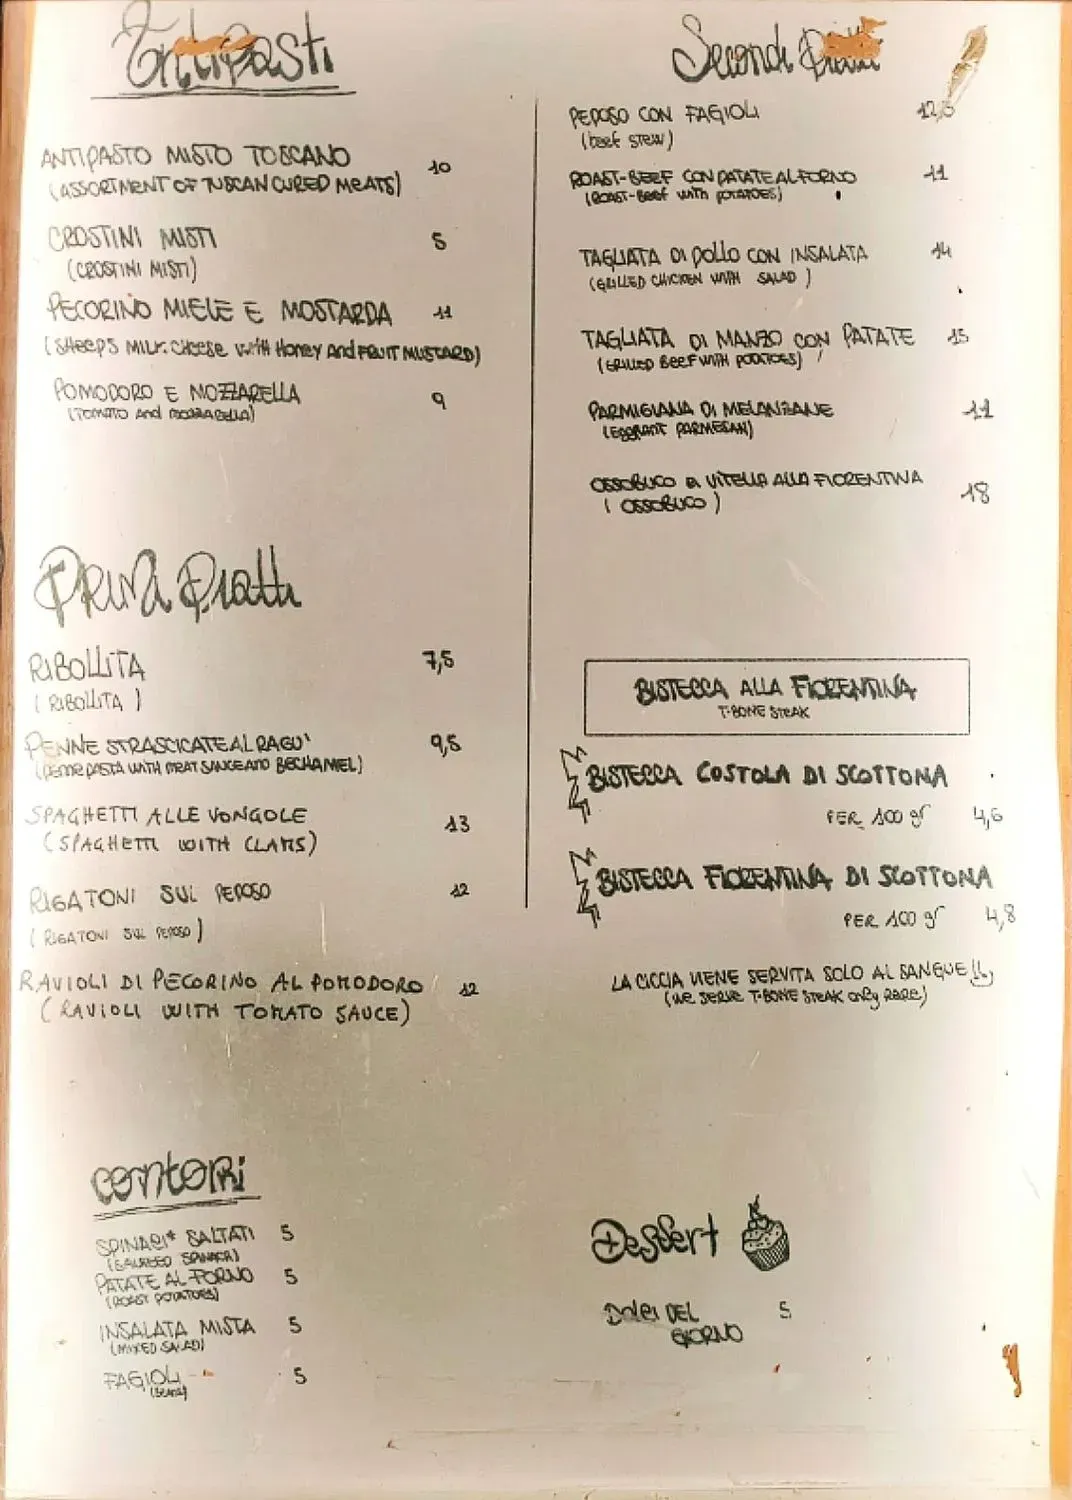 Antipasti
ANTIPASTO MISTO TOSCANO 10
(ASSORTMENT OF TUSCAN CURED MEATS)
CROSTINI MISTI 5
(CROSTINI MISTI)
PECORINO MIELE E MOSTARDA 11
(SHEEPS MILK CHEESE WITH HONEY AND FRUIT MUSTARD)
POMODORO E MOZZARELLA 9
(TOMATO AND MOZZARELLA)
Primi Piatti
RIBOLLITA 7,5
(RIBOLLITA)
PENNE STRASCICATE AL RAGU' 9,5
(PENNE PASTA WITH MEAT SAUCE AND BECHAMEL)
SPAGHETTI ALLE VONGOLE 13
(SPAGHETTI WITH CLAMS)
RIGATONI SUL PEPOSO 12
(RIGATONI SUL PEPOSO)
RAVIOLI DI PECORINO AL POMODORO 12
(RAVIOLI WITH TOMATO SAUCE)
contorni
SPINACI* SALTATI 5
(SAUTEED SPINACH)
PATATE AL FORNO 5
(ROAST POTATOES)
INSALATA MISTA 5
(MIXED SALAD)
FAGIOLI 5
(BEANS)
Secondi Piatti
PEPOSO CON FAGIOLI
(beef STEW)
ROAST-BEEF CON PATATE AL FORNO 11
(ROAST-BEEF WITH POTATOES)
TAGLIATA DI POLLO CON INSALATA 14
(GRILLED CHICKEN WITH SALAD)
TAGLIATA DI MANZO CON PATATE 15
(GRILLED BEEF WITH POTATOES)
PARMIGIANA DI MELANZANE 11
(EGGPLANT PARMESAN)
OSSOBUCO DI VITELLA ALLA FIORENTINA 18
(OSSOBUCO)
BISTECCA ALLA FIORENTINA
T-BONE STEAK
BISTECCA COSTOLA DI SCOTTONA
PER 100 gr 4,6
BISTECCA FIORENTINA DI SCOTTONA
PER 100 gr 4,8
LA CICCIA VIENE SERVITA SOLO AL SANGUE !!
(WE SERVE T-BONE STEAK ONLY RARE)
Dessert
DOLCI DEL 5
GIORNO